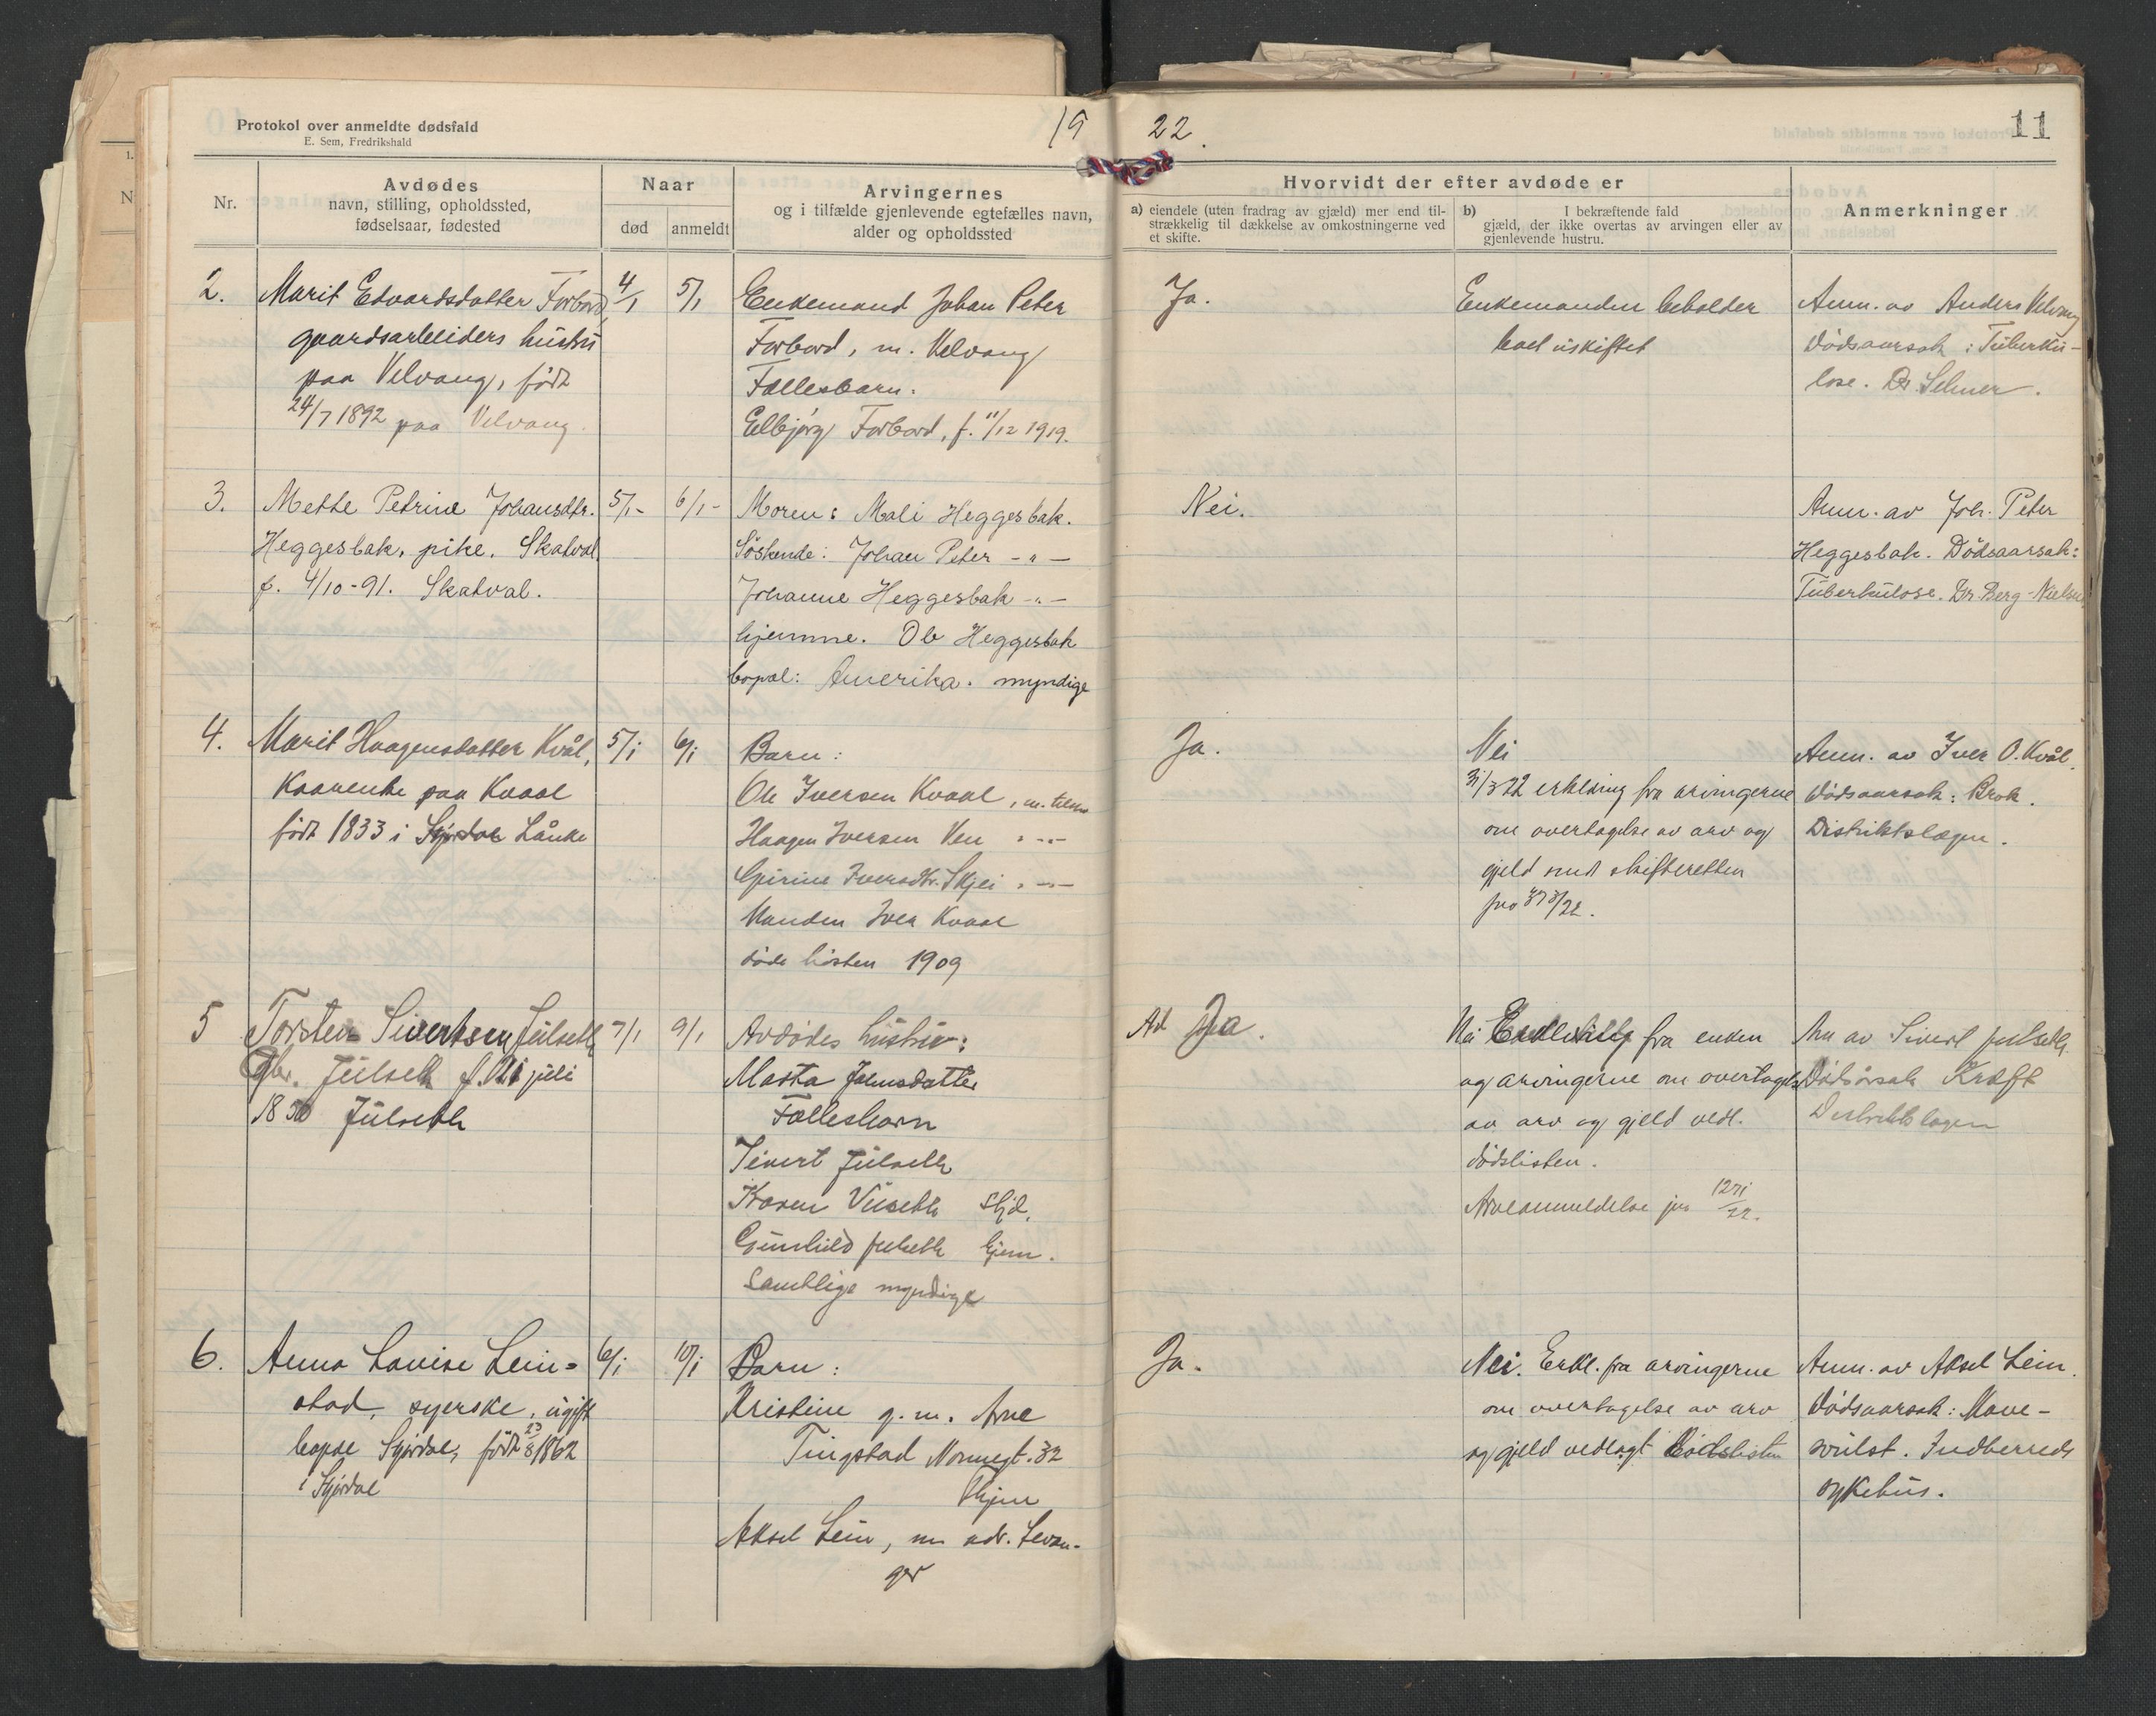 Protokol over anmeldte dødsfald
E. Sem, Fredrikshald
19 22.
11
Nr.
Avdødes
navn, stilling, opholdssted,
fødselsaar, fødested
Naar
død
anmeldt
Arvingernes
og i tilfælde gjenlevende egtefælles navn,
alder og opholdssted
Hvorvidt der efter avdøde er
a) eiendele (uten fradrag av gjæld) mer end til-
strækkelig til dækkelse av omkostningerne ved
et skifte.
b) I bekræftende fald
gjæld, der ikke overtas av arvingen eller av
gjenlevende hustru.
Anmerkninger
2.
Marit Edvardsdatter Forbord,
gaardsarbeiders hustru
paa Velvang, født
24/7 1892 paa Velvang.
4/1
5/1
Enkemand Johan Peter
Forbord, m. Velvang
Fællesbarn:
Eelbjørg Forbord, f. 11/12 1919.
Ja.
Enkemanden beholder
boet uskiftet
Anm. av Anders Velvang
Dødsaarsak: Tuberku-
lose. Dr. Selmer.
3.
Mette Petrine Johansdtr.
Heggesbak, pike. Skatval
f. 4/10-91. Skatval.
5/1-
6/1-
Moren: Mali Heggesbak.
Søskende: Johan Peter -"-
Johanne Heggesbak -"-
hjemme. Ole Heggesbak
bopæl: Amerika. myndige
Nei.
Anm. av Joh. Peter
Heggesbak. Dødsaarsak:
Tuberkulose. Dr. Berg-Nielsen
4.
Marit Haagensdatter Kvål,
Kaarenke paa Kvaal
født 1833 i Stjørdal Lånke
5/1
6/1
Barn:
Ole Iversen Kvaal,
Haagen Iversen Ven "---
Gurine Iversdtr. Skjei "---
Manden Iver Kvaal
døde høsten 1909
Ja.
Nei
31/3 22 erklæring fra arvingerne
om overtagelse av arv og
gjeld sendt skifteretten
Anm. av Iver O. Kvål.
Dødsaarsak: Brok.
Distriktslægen.
5
Torsten Sivertsen Julseth
Gbr. Julseth f. 21 juli
1850 Julseth
7/1
9/1
Avdødes hustru:
Marta Johnsdatter
Fællesbarn
Sivert Julseth
Karen Viiseth Stjd.
Gunhild Julseth hjem.
Samtlige myndige
Ja.
fra enken
og arvingerne om overtagelse
av arv og gjeld vedl.
dødslisten.
Arveanmeldelse
An av Sivert Julseth
Dødsårsak Kræft
Distriktslægen
6.
Anna Lovise Lein=
stad, syerske, ugift
bopæl Stjørdal, født 23/8 1862
i Stjørdal
6/1
10/1
Barn:
Kristine g. m. Arne
Tingstad Nonnegt. 32
Thjem
Aksel Lein, m adr. Levan-
ger
Ja.
Nei. Erkl. fra arvingerne
om overtagelse av arv
og gjeld vedlagt dødslisten
Anm. av Aksel Lein.
Dødsaarsak: Mave-
svulst. Indherreds
sykehus.